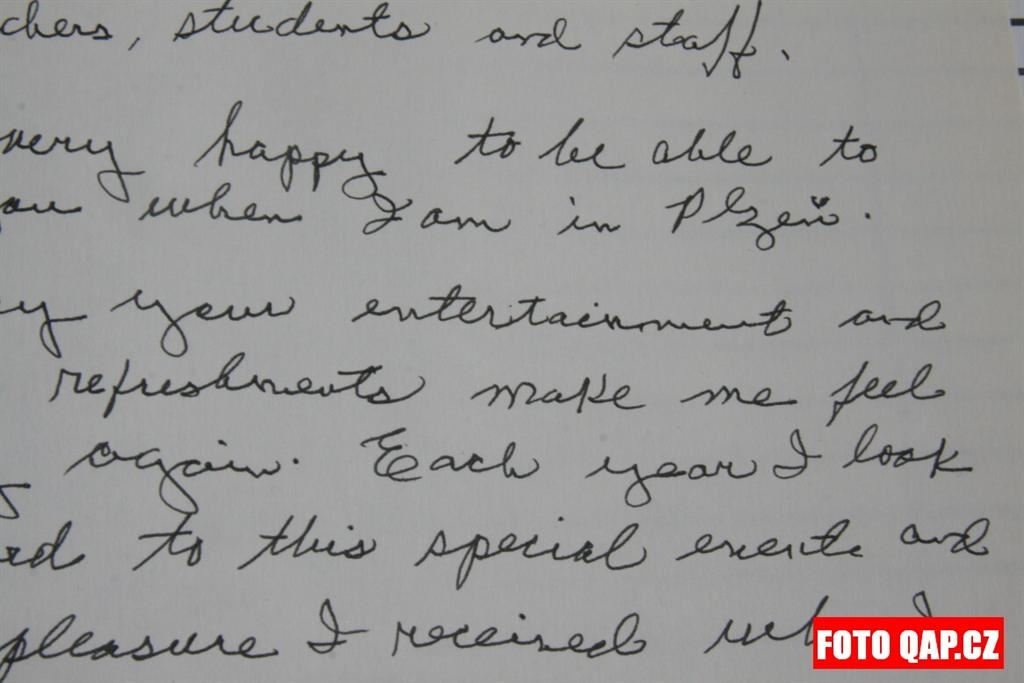 chers, students and staff.
very happy to be able to
ou when I am in Plzeň.
y your entertainment and
refreshments make me feel
again. Each year I look
rd to this special event and
pleasure I received wh I
FOTO QAP.CZ